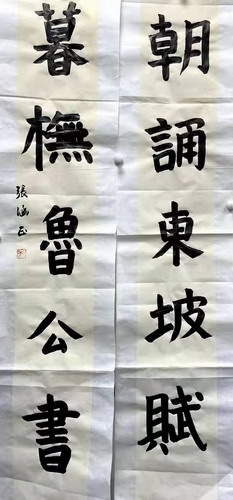 朝誦東坡賦
暮橅魯公書
張海正